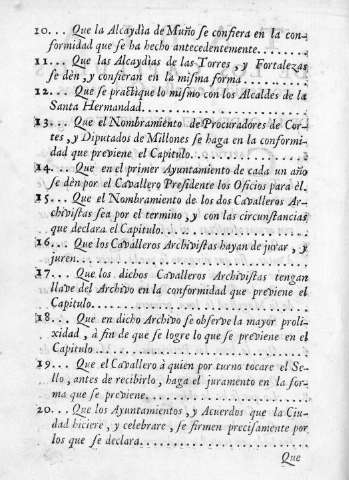 10... Que la Alcaydìa de Muño ſe confiera en la con-
formidad que ſe ha hecho antecedentemente.......
11... Que las Alcaydìas de las Torres, y Fortalezas
ſe dèn, y confieran en la miſma forma.........
12... Que ſe practique lo miſmo con los Alcaldes de la
Santa Hermandad..................
13... Que el Nombramiento de Procuradores de Cor-
tes, y Diputados de Millones ſe haga en la conformi-
dad que previene el Capitulo............
14... Que en el primer Ayuntamiento de cada un año
ſe dèn por el Cavallero Preſidente los Oficios para èl.
15... Que el Nombramiento de los dos Cavalleros Ar-
chiviſtas ſea por el termino, y con las circunſtancias
que declara el Capitulo...............
16... Que los Cavalleros Archiviſtas hayan de jurar, y
juren.......................
17... Que los dichos Cavalleros Archiviſtas tengan
llave del Archivo en la conformidad que previene el
Capitulo.....................
18... Que en dicho Archivo ſe obſerve la mayor proli-
xidad, à fin de que ſe logre lo que ſe previene en el
Capitulo.....................
19... Que el Cavallero à quien por turno tocare el Se-
llo, antes de recibirlo, haga el juramento en la for-
ma que ſe previene.................
20... Que los Ayuntamientos, y Acuerdos que la Ciu-
dad hiciere, y celebrare, ſe firmen preciſamente por
los que ſe declara.................
Que